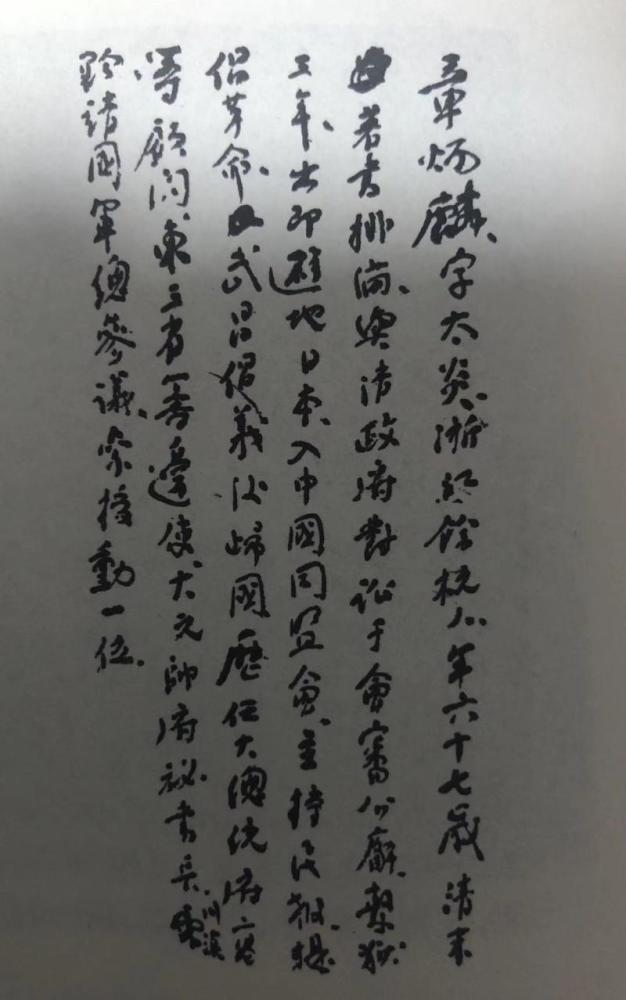 章炳麟字太炎浙江餘杭人年六十七歲清末
著書排滿與清政府對訟于會審公廨繫獄
三年出即避地日本入中國同盟會主持民報提
倡革命武昌倡義後歸國歷任大總統府高
等顧問東三省籌邊使大元帥府祕書長川滇
黔靖國軍總參議案授勳一位